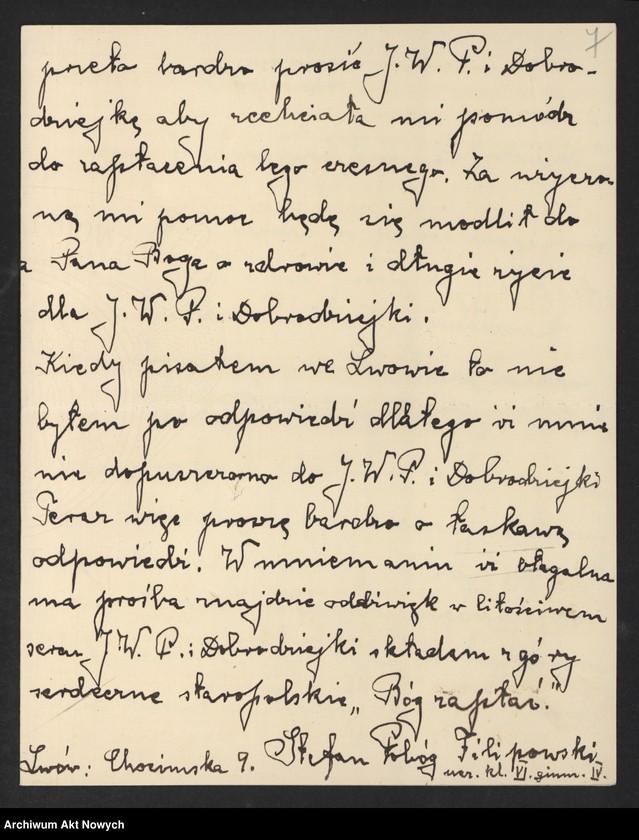 7
przeto bardzo prosić J. W. P. i Dobro-
dziejkę aby zechciała mi pomódz
do zapłacenia tego czesnego. Za użyczo
ną mi pomoc będę się modlił do
a Pana Boga o zdrowie i długie życie
dla J. W. P. i Dobrodziejki.
Kiedy pisałem we Lwowie to nie
byłem po odpowiedź dlatego iż mnie
nie dopuszczono do J. W. P. i Dobrodziejki
Teraz więc proszę bardzo o łaskawą
odpowiedź. W mniemaniu iż błagalna
ma prośba znajdzie oddźwięk w litościwem
sercu J. W. P. i Dobrodziejki składam z góry
serdeczne staropolskie „Bóg zapłać."
Lwów: Chocimska 9. Stefan Pobóg Filipowski
ucz. kl. VI. gimn. IV.
Archiwum Akt Nowych